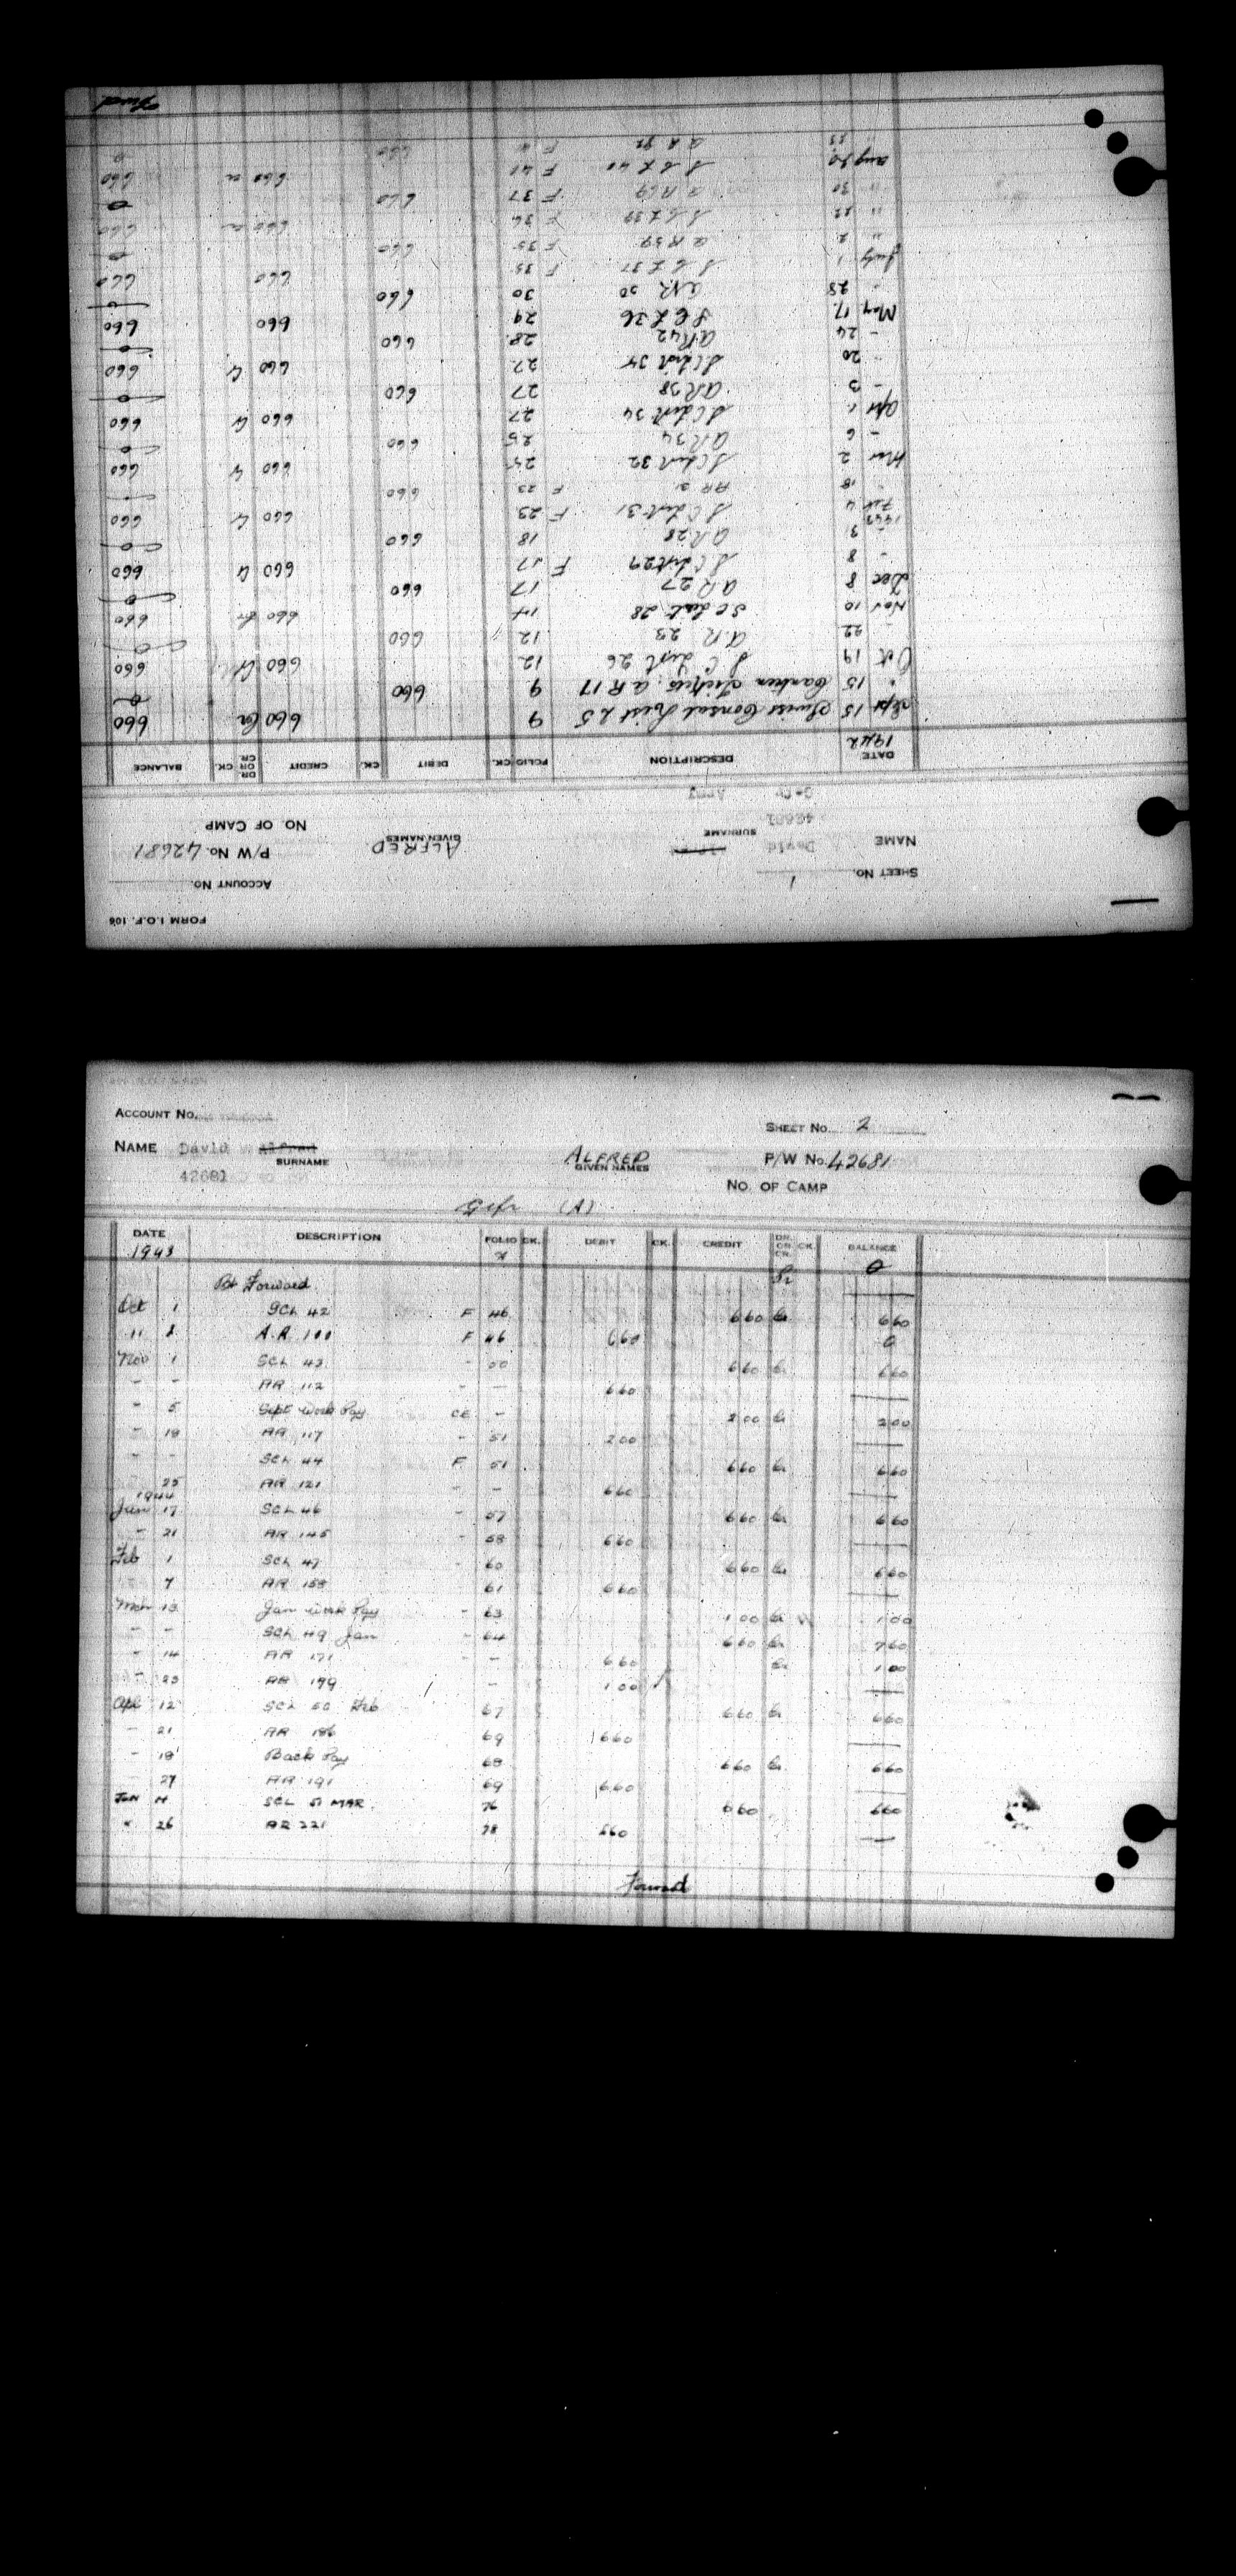 FORM I.O.F. 106
SHEET No. 1
ACCOUNT No.
NAME David
SURNAME
ALFRED
GIVEN NAMES
P/W No. 42681
42681
NO. OF CAMP
Gefr Army
DATE DESCRIPTION FOLIO CK. DEBIT CK. CREDIT DR. OR CR. CK. BALANCE
1942
Sept 15 Swiss Consul List 25 9 660 Cr 660
" 15 Canteen Tickets AR 17 9 660 0
Oct 19 S C List 26 12 660 Cr 660
22 A.R. 23 12 660 0
Nov 10 SC List 28 14 660 660
Dec 8 AR 27 17 660 0
- 8 S C List 29 F 17 660 Cr 660
- 3 AR 28 18 660 0
1943
Feb 4 S C List 31 F 23 660 Cr 660
- 18 AR 31 F 23 660
Mar 2 S C List 32 25 660 Cr 660
- 6 AR 34 25 660 0
Apr 1 S C List 34 27 660 Cr 660
- 3 AR 38 27 660 0
- 20 S C List 34 27 660 Cr 660
- 24 AR 42 28 660 0
May 17 S C L 36 29 660 660
- 28 AR 50 30 660 0
July 1 S C L 37 F 35 660 660
" 2 AR 59 F 35 660 0
" 22 S C L 39 F 36 660 Cr 660
" 30 AR 69 F 37 660 0
Aug S C L 40 F 41 660 Cr 660
" F 660 0
Fwd
ACCOUNT No.
SHEET No. 2
NAME David Alfred
SURNAME
ALFRED
GIVEN NAMES
P/W No. 42681
42681
NO. OF CAMP
Gefr (A)
DATE DESCRIPTION FOLIO CK. DEBIT CK. CREDIT DR. OR CR. CK. BALANCE
1943 0
Bt Forward
Oct 1 SCL 42 F 46 660 Cr 660
" 1 A.R. 100 F 46 660 0
Nov 1 SCL 43 - 50 660 Cr 660
- - AR 112 - - 660
- 5 Sept Work Pay CE - 200 Cr 200
- 18 AR 117 - 51 200
- - SCL 44 F 51 660 Cr 660
25 AR 121 - - 660
1944
Jan 17 SCL 46 - 57 660 Cr 660
- 21 AR 145 - 58 660
Feb 1 SCL 47 - 60 660 Cr 660
7 AR 153 - 61 660
Mch 13 Jan Work Pay - 63 100 Cr 100
- - SCL 49 Jan - 64 660 Cr 760
- 14 AR 171 - - 660 Cr 100
- 23 AR 179 - 100
Apl 12 SCL 50 Feb 67 660 Cr 660
- 21 AR 186 69 660
- 18 Back Pay 68 660 Cr 660
27 AR 191 69 660
Jun 14 SCL 51 MAR. 76 660 660
" 26 AR 221 78 660
Forward